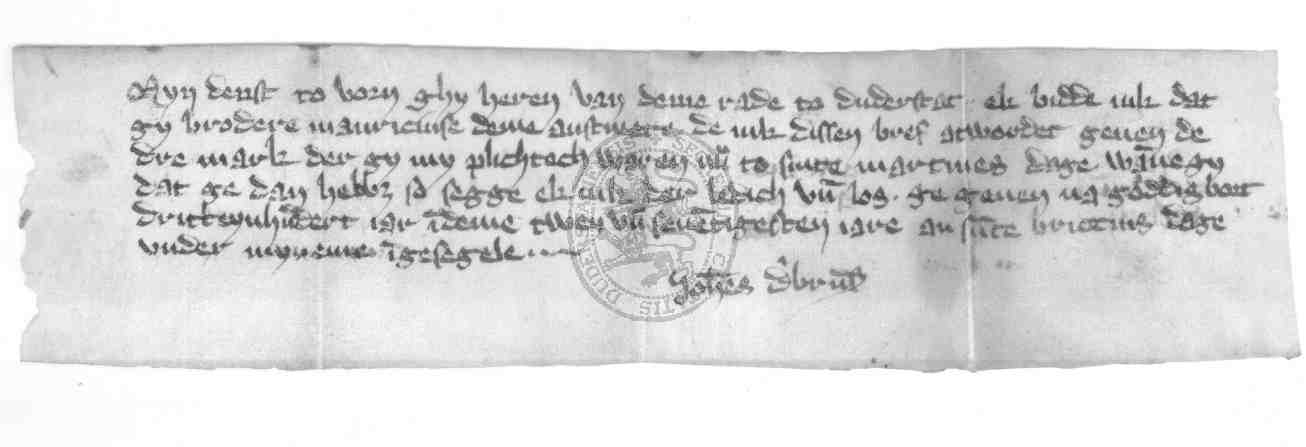 Myn denst to vorn ghy heren van deme rade to duderstat ek bidde iuk dat
gy brodere mauriciuse deme de iuk dissen bref atwordet geuen de
dre mark der gy my plichtech waren nu to sinte martines dage wānegy
dat ge dan hebbz so segge ek iuk der ledich vn̄ los. ge geuen na goddis bort
drittēynhūdert iar īdeme twey vn̄ seuētigesten iare an sūte briccius dage
vnder myneme īgesegele
Johēs